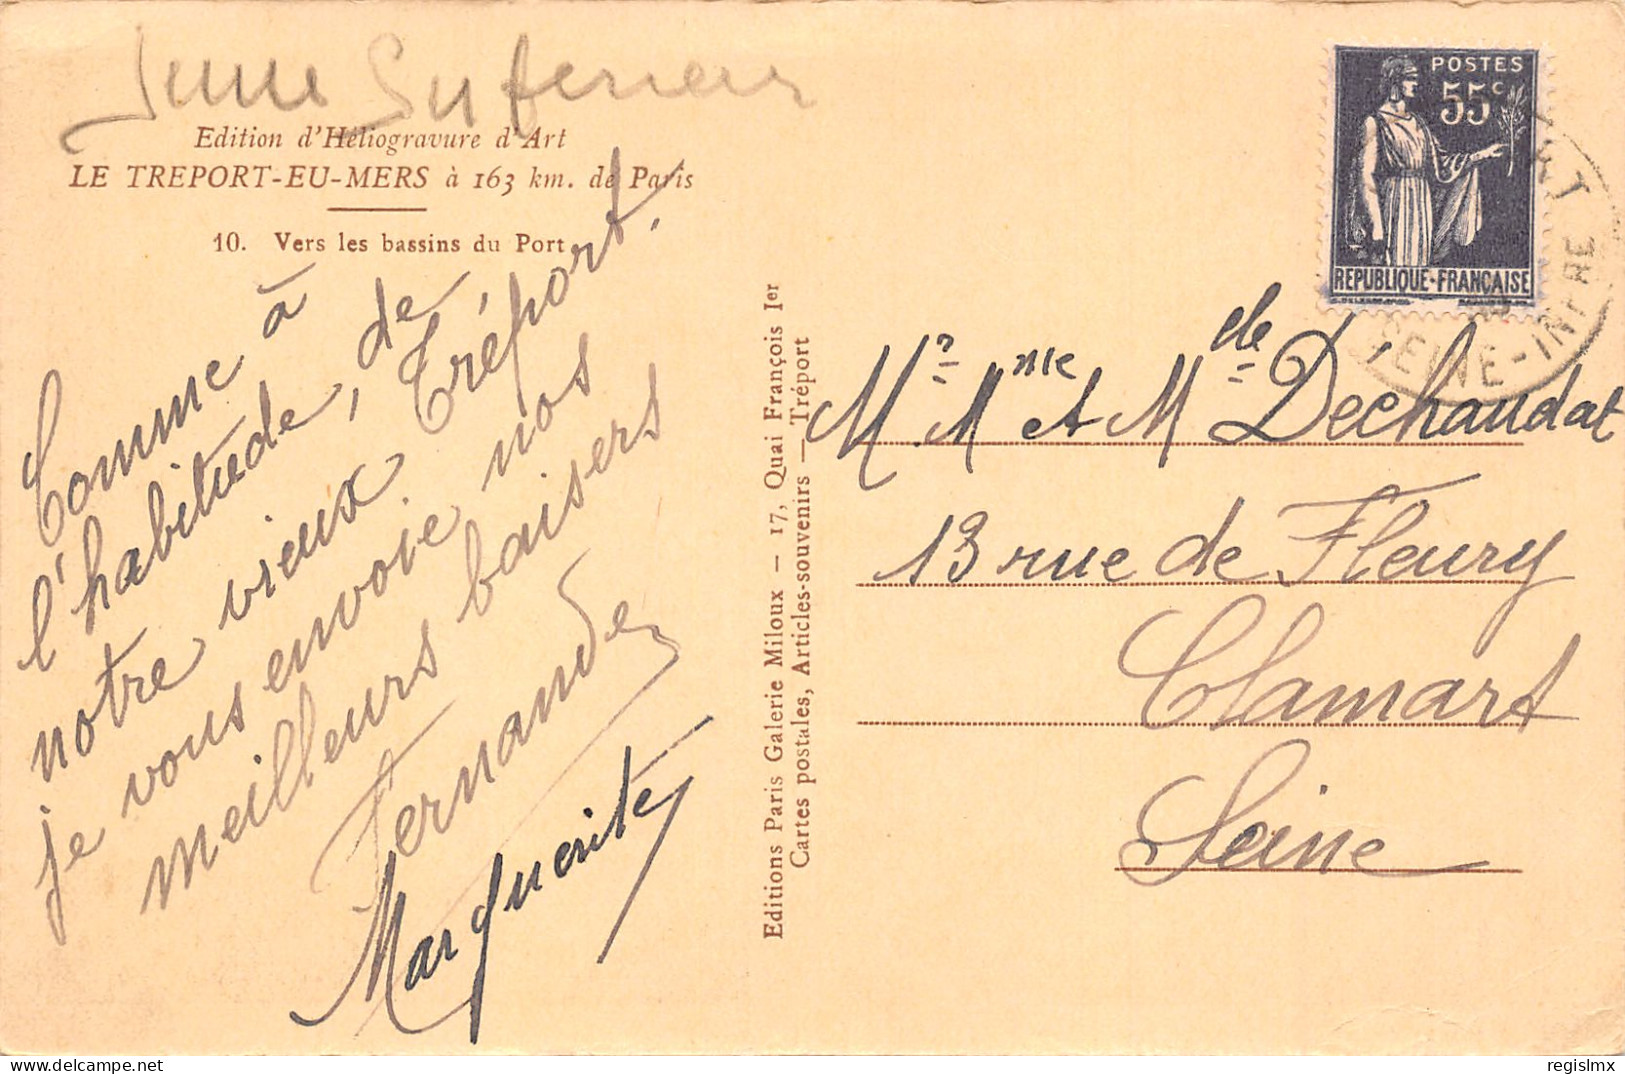 Seine Inferieur
Edition d'Héliogravure d'Art
LE TREPORT-EU-MERS à 163 km. de Paris
10. Vers les bassins du Port
Comme à
l'habitude, de
notre vieux Tréport.
je vous envoie nos
meilleurs baisers
Fernande
Marguerite
Editions Paris Galerie Miloux — 17, Quai François Ier
Cartes postales, Articles-souvenirs — Tréport
POSTES
55c
REPUBLIQUE-FRANÇAISE
SEINE-INFRE
Mr Mme et Mdelle Déchaudat
13 rue de Fleury
Clamart
Seine
delcampe.net
regislmx